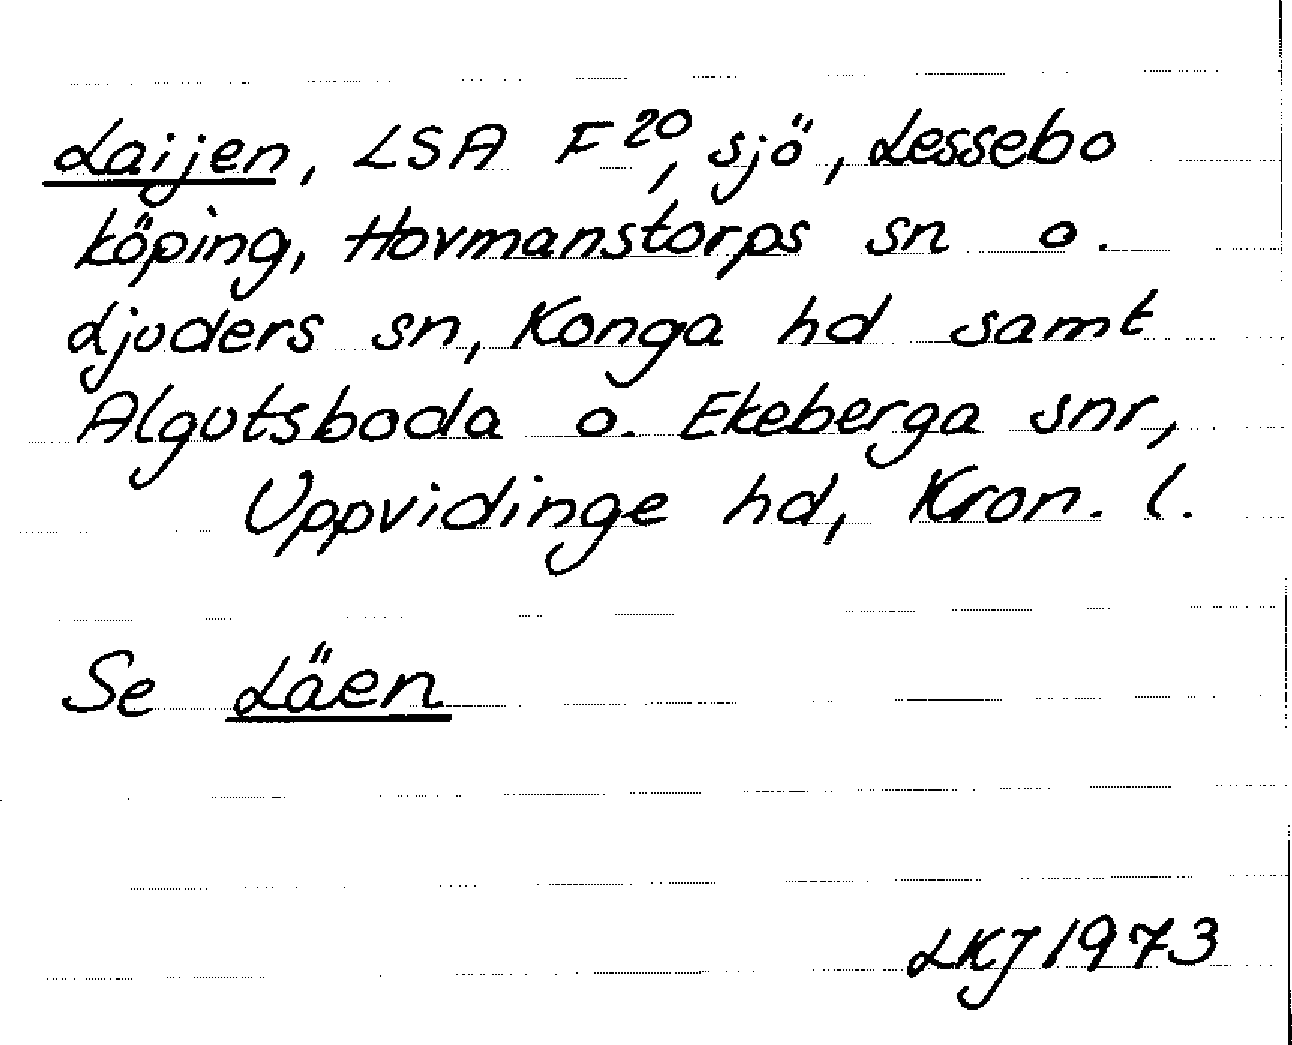 Laijen, LSA F 20, sjö, Lessebo
köping, Hovmanstorps sn o.
Ljuders sn, Konga hd samt
Algutsboda o. Ekeberga snr,
Uppvidinge hd, Kron. l.
Se Läen
LKJ 1973